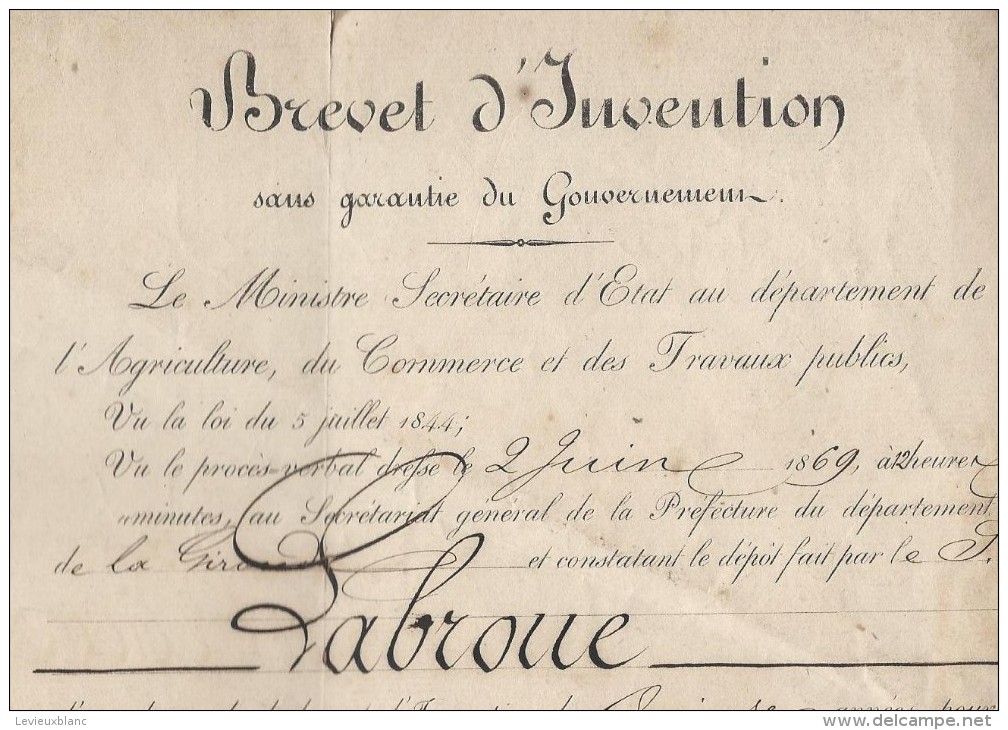 Brevet d'Invention
sans garantie du Gouvernement.
Le Ministre Secrétaire d'Etat au département de
l'Agriculture, du Commerce et des Travaux publics,
Vu la loi du 5 juillet 1844;
Vu le procès-verbal dressé le 2 Juin 1869, à 12 heures
minutes, au Secrétariat général de la Préfecture du département
de la Gironde et constatant le dépôt fait par le S.
Labroue
d'Invention de années pour
Levieuxblanc
delcampe.net